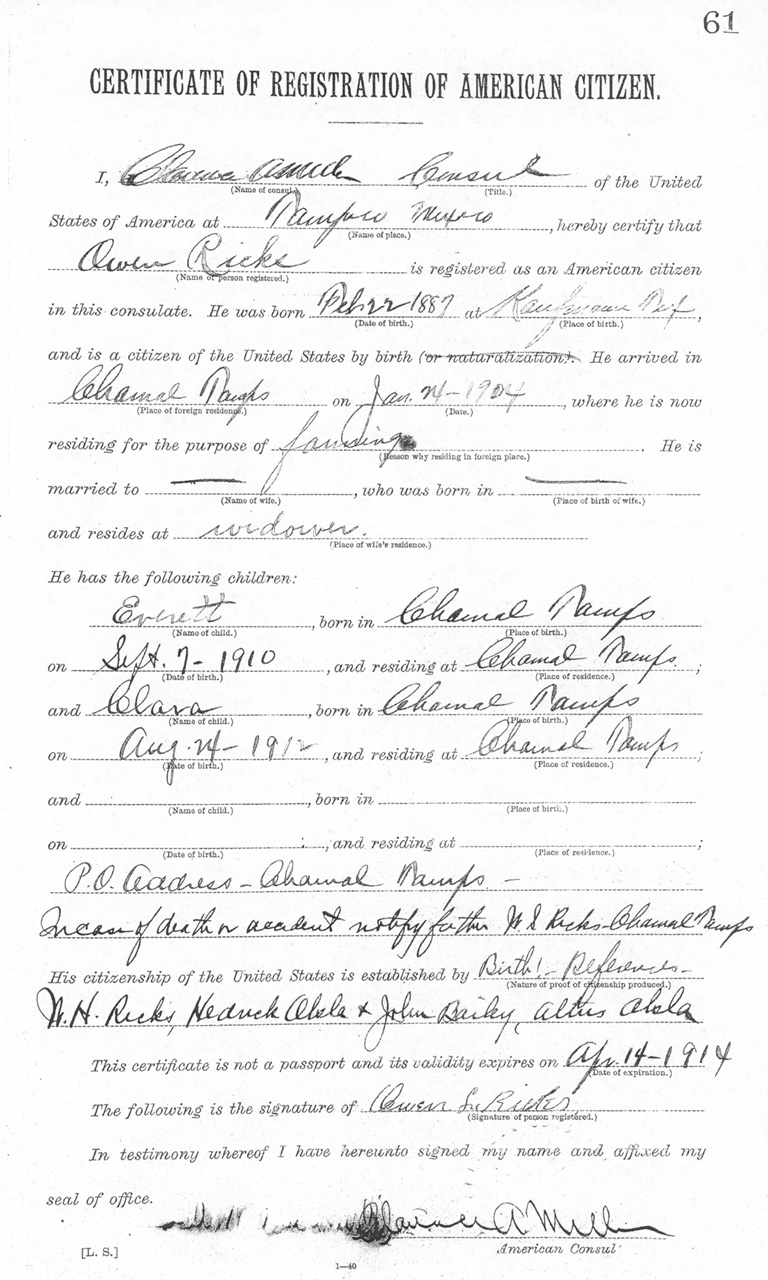 61
CERTIFICATE OF REGISTRATION OF AMERICAN CITIZEN.
I, Clarence A Miller Consul of the United
(Name of consul.) (Title.)
States of America at Tampico Mexico, hereby certify that
(Name of place.)
Owen Ricks is registered as an American citizen
(Name of person registered.)
in this consulate. He was born Feb 22 1887 at Kaufman Tex,
(Date of birth.) (Place of birth.)
and is a citizen of the United States by birth (or naturalization). He arrived in
Chamal Tamps on Jan. 24-1904, where he is now
(Place of foreign residence.) (Date.)
residing for the purpose of farming. He is
(Reason why residing in foreign place.)
married to —, who was born in —
(Name of wife.) (Place of birth of wife.)
and resides at widower.
(Place of wife's residence.)
He has the following children:
Everett, born in Chamal Tamps
(Name of child.) (Place of birth.)
on Sept. 7-1910, and residing at Chamal Tamps.;
(Date of birth.) (Place of residence.)
and Clara, born in Chamal Tamps
(Name of child.) (Place of birth.)
on Aug. 24-1912, and residing at Chamal Tamps;
(Date of birth.) (Place of residence.)
and , born in
(Name of child.) (Place of birth.)
on , and residing at ;
(Date of birth.) (Place of residence.)
P.O. Address - Chamal Tamps -
In case of death or accident notify father W S Ricks Chamal Tamps
His citizenship of the United States is established by Birth! - References -
(Nature of proof of citizenship produced.)
W. H. Ricks, Hedrick Okla & John Baily, Altus Okla
This certificate is not a passport and its validity expires on Apr. 14-1914
(Date of expiration.)
The following is the signature of Owen S. Ricks
(Signature of person registered.)
In testimony whereof I have hereunto signed my name and affixed my
seal of office.
Clarence A Miller
[L. S.] American Consul
1—40